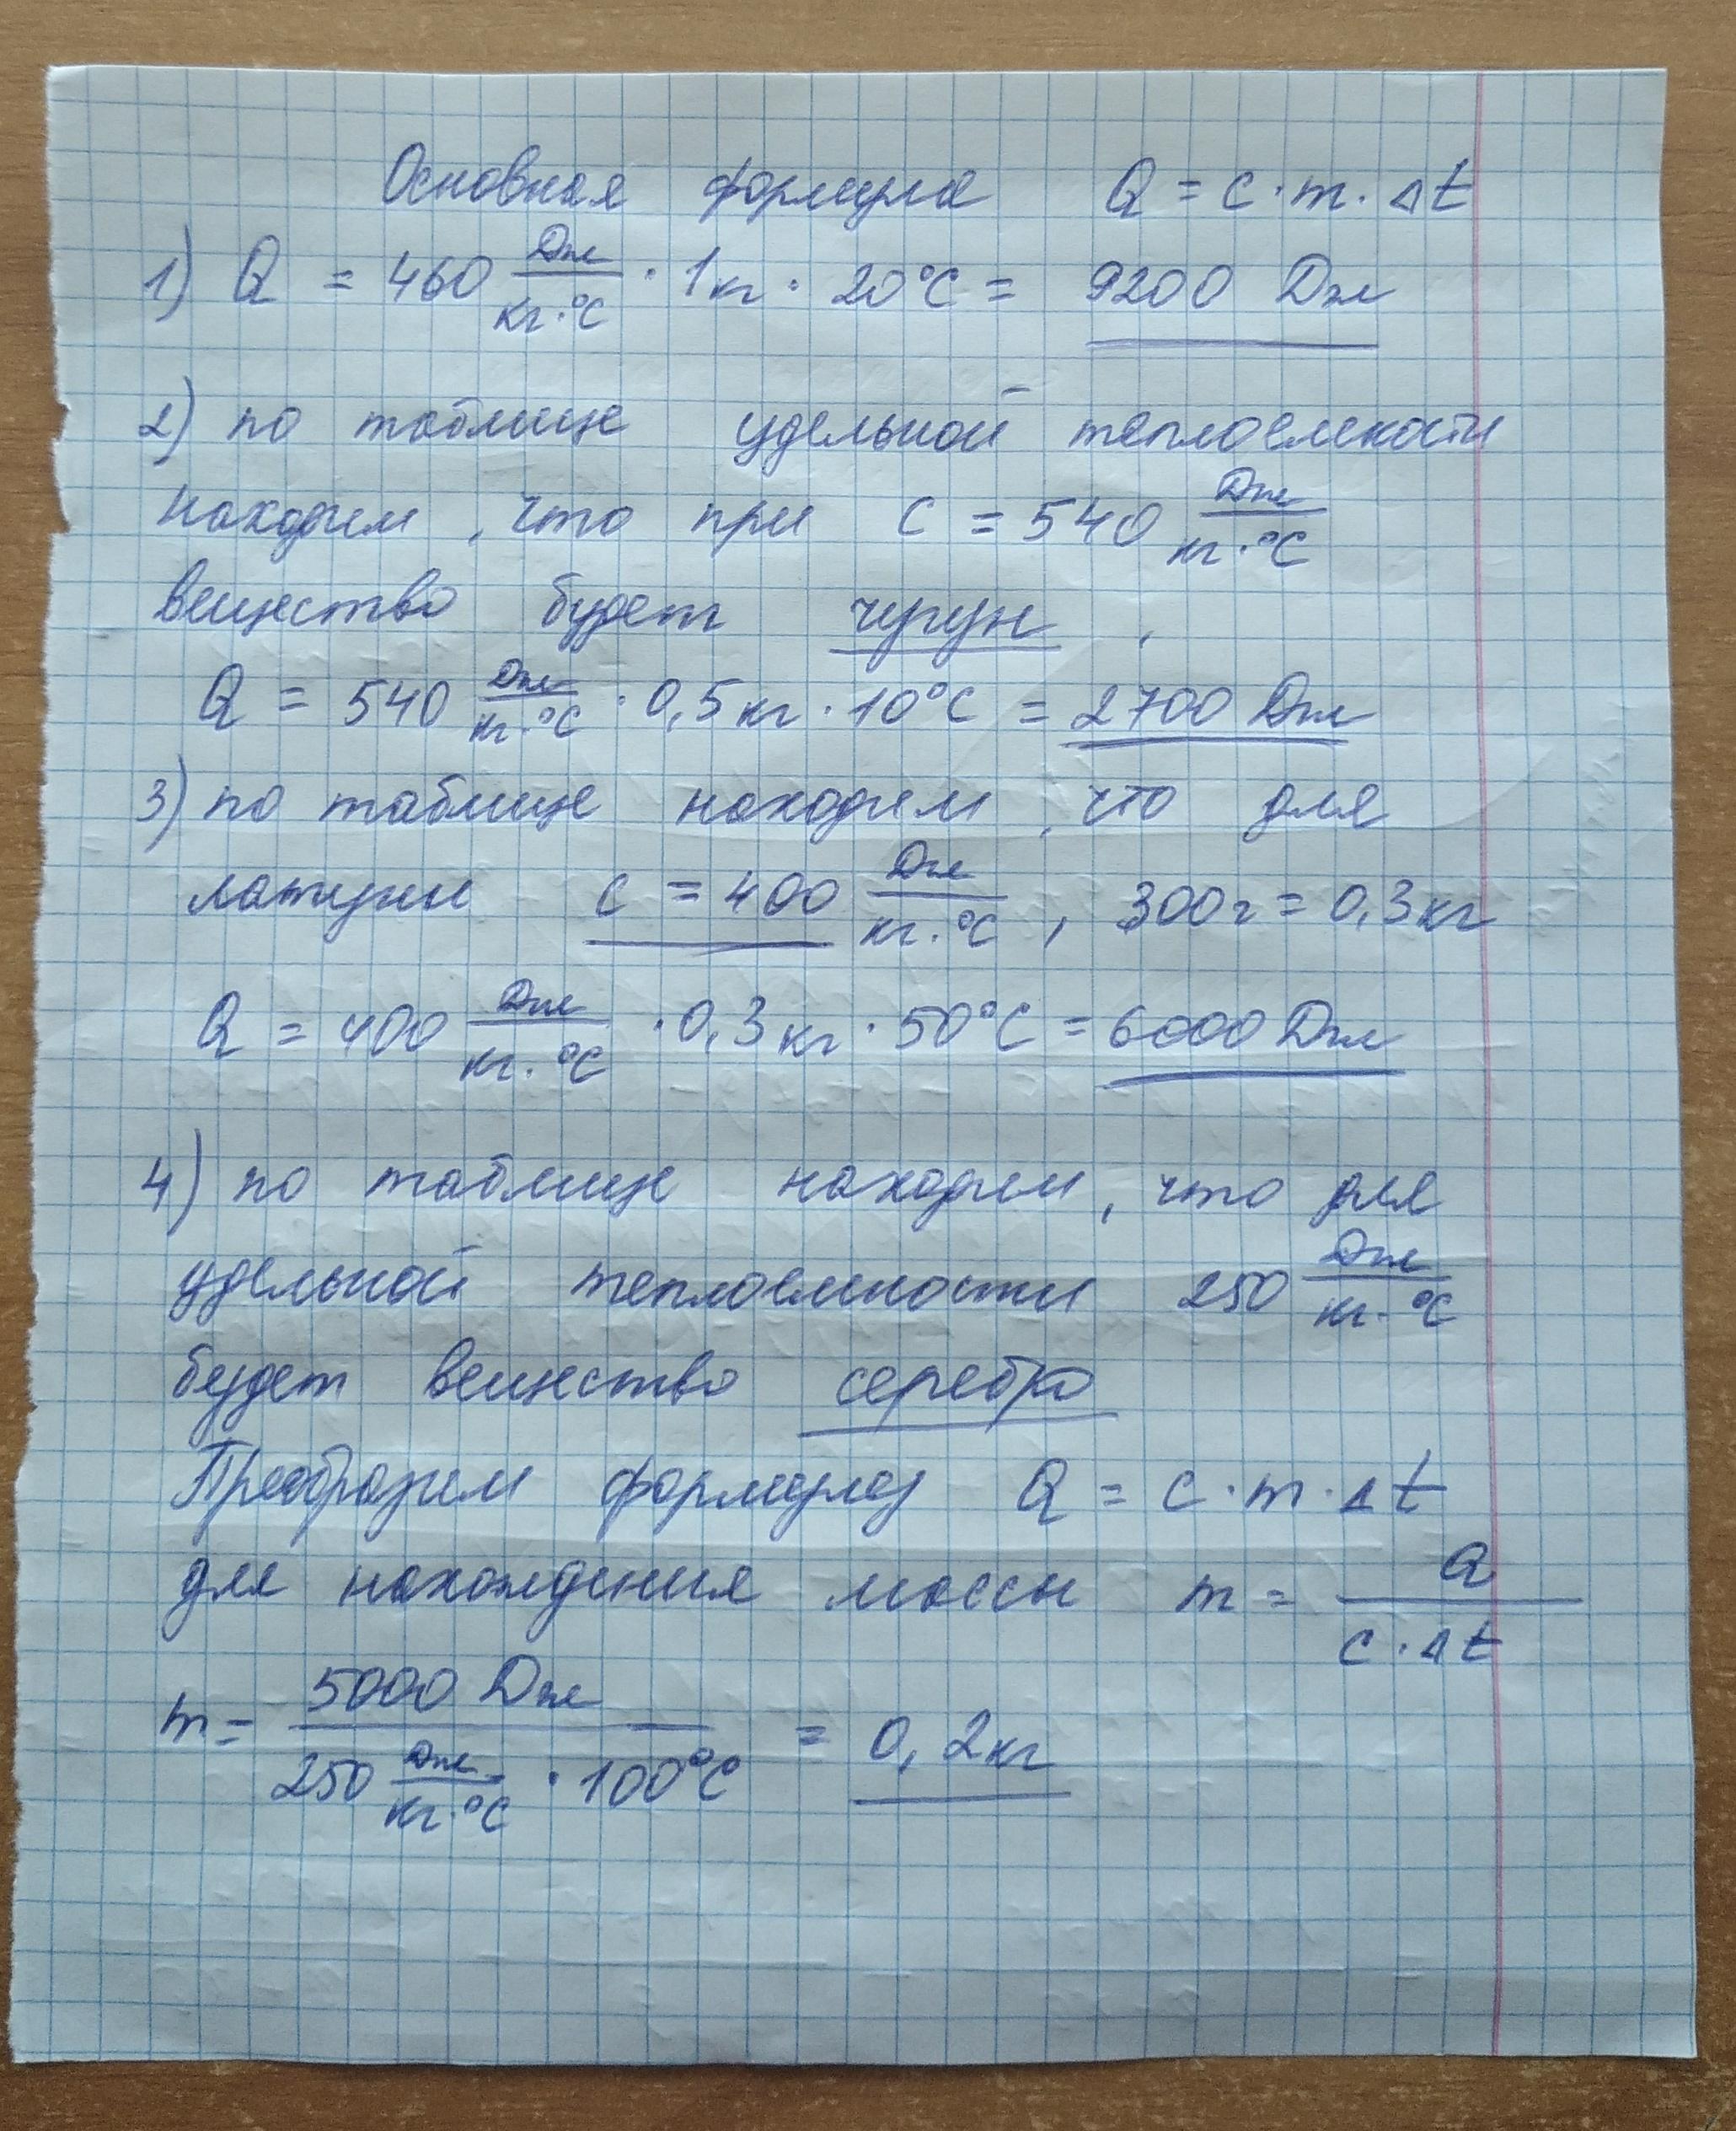 Основная формула Q = c · m · Δt
1) Q = 460 Дж/кг·°C · 1кг · 20°C = 9200 Дж
2) по таблице удельной теплоемкости
находим, что при c = 540 Дж/кг·°C
вещество будет чугун,
Q = 540 Дж/кг·°C · 0,5кг · 10°C = 2700 Дж
3) по таблице находим, что для
латуни c = 400 Дж/кг·°C, 300г = 0,3кг
Q = 400 Дж/кг·°C · 0,3кг · 50°C = 6000 Дж
4) по таблице находим, что для
удельной теплоемкости 250 Дж/кг·°C
будет вещество серебро
Преобразуем формулу Q = c · m · Δt
для нахождения массы m = Q/c·Δt
m = 5000 Дж/250 Дж/кг·°C · 100°C = 0,2кг